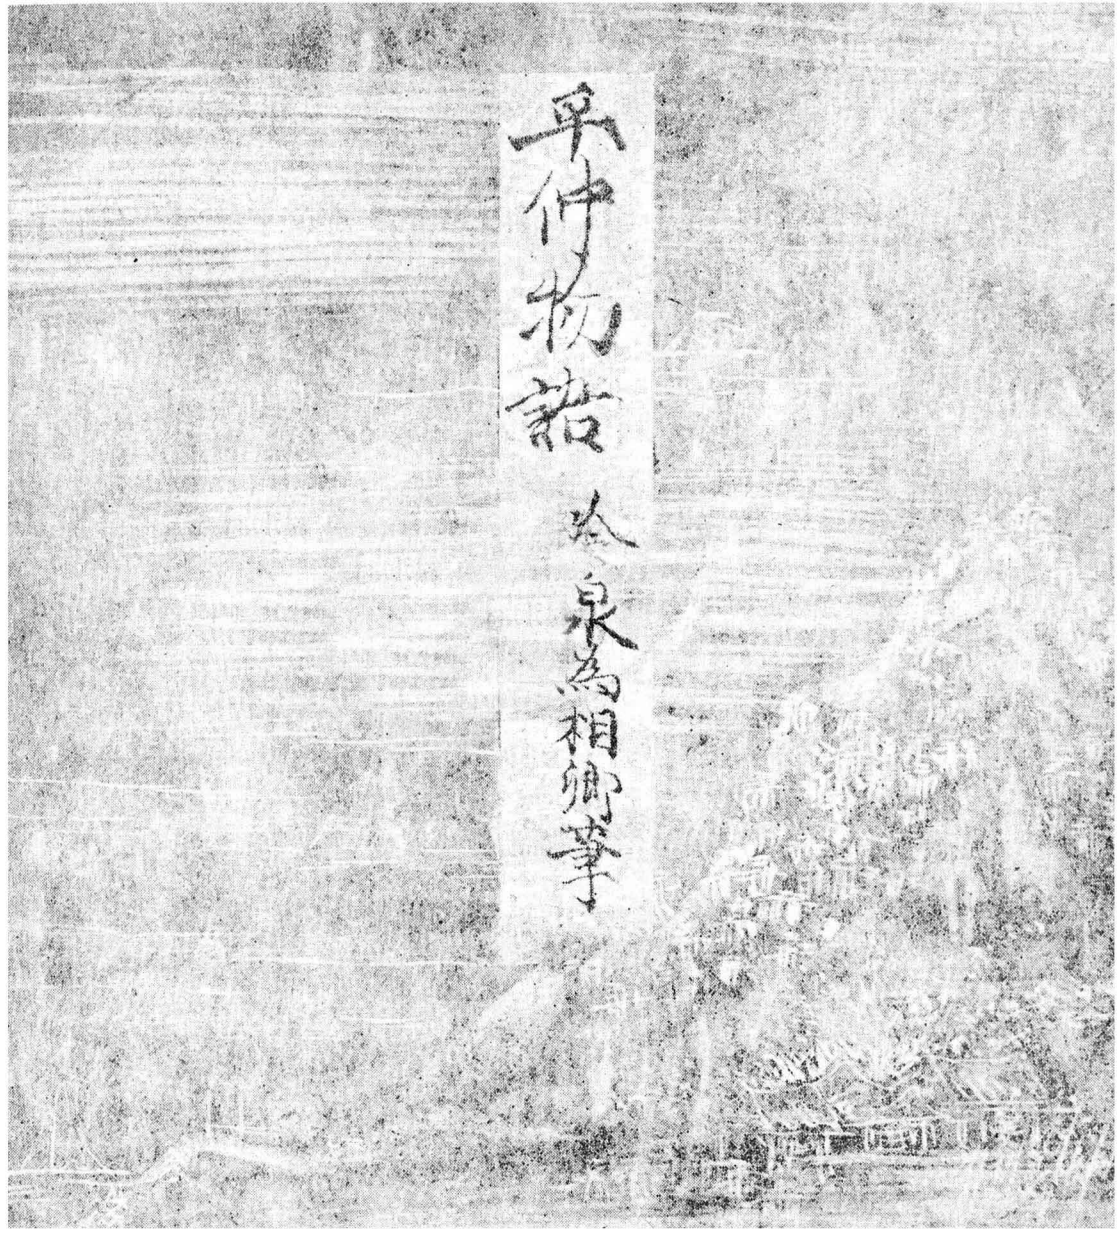 平仲物語
冷泉為相卿筆